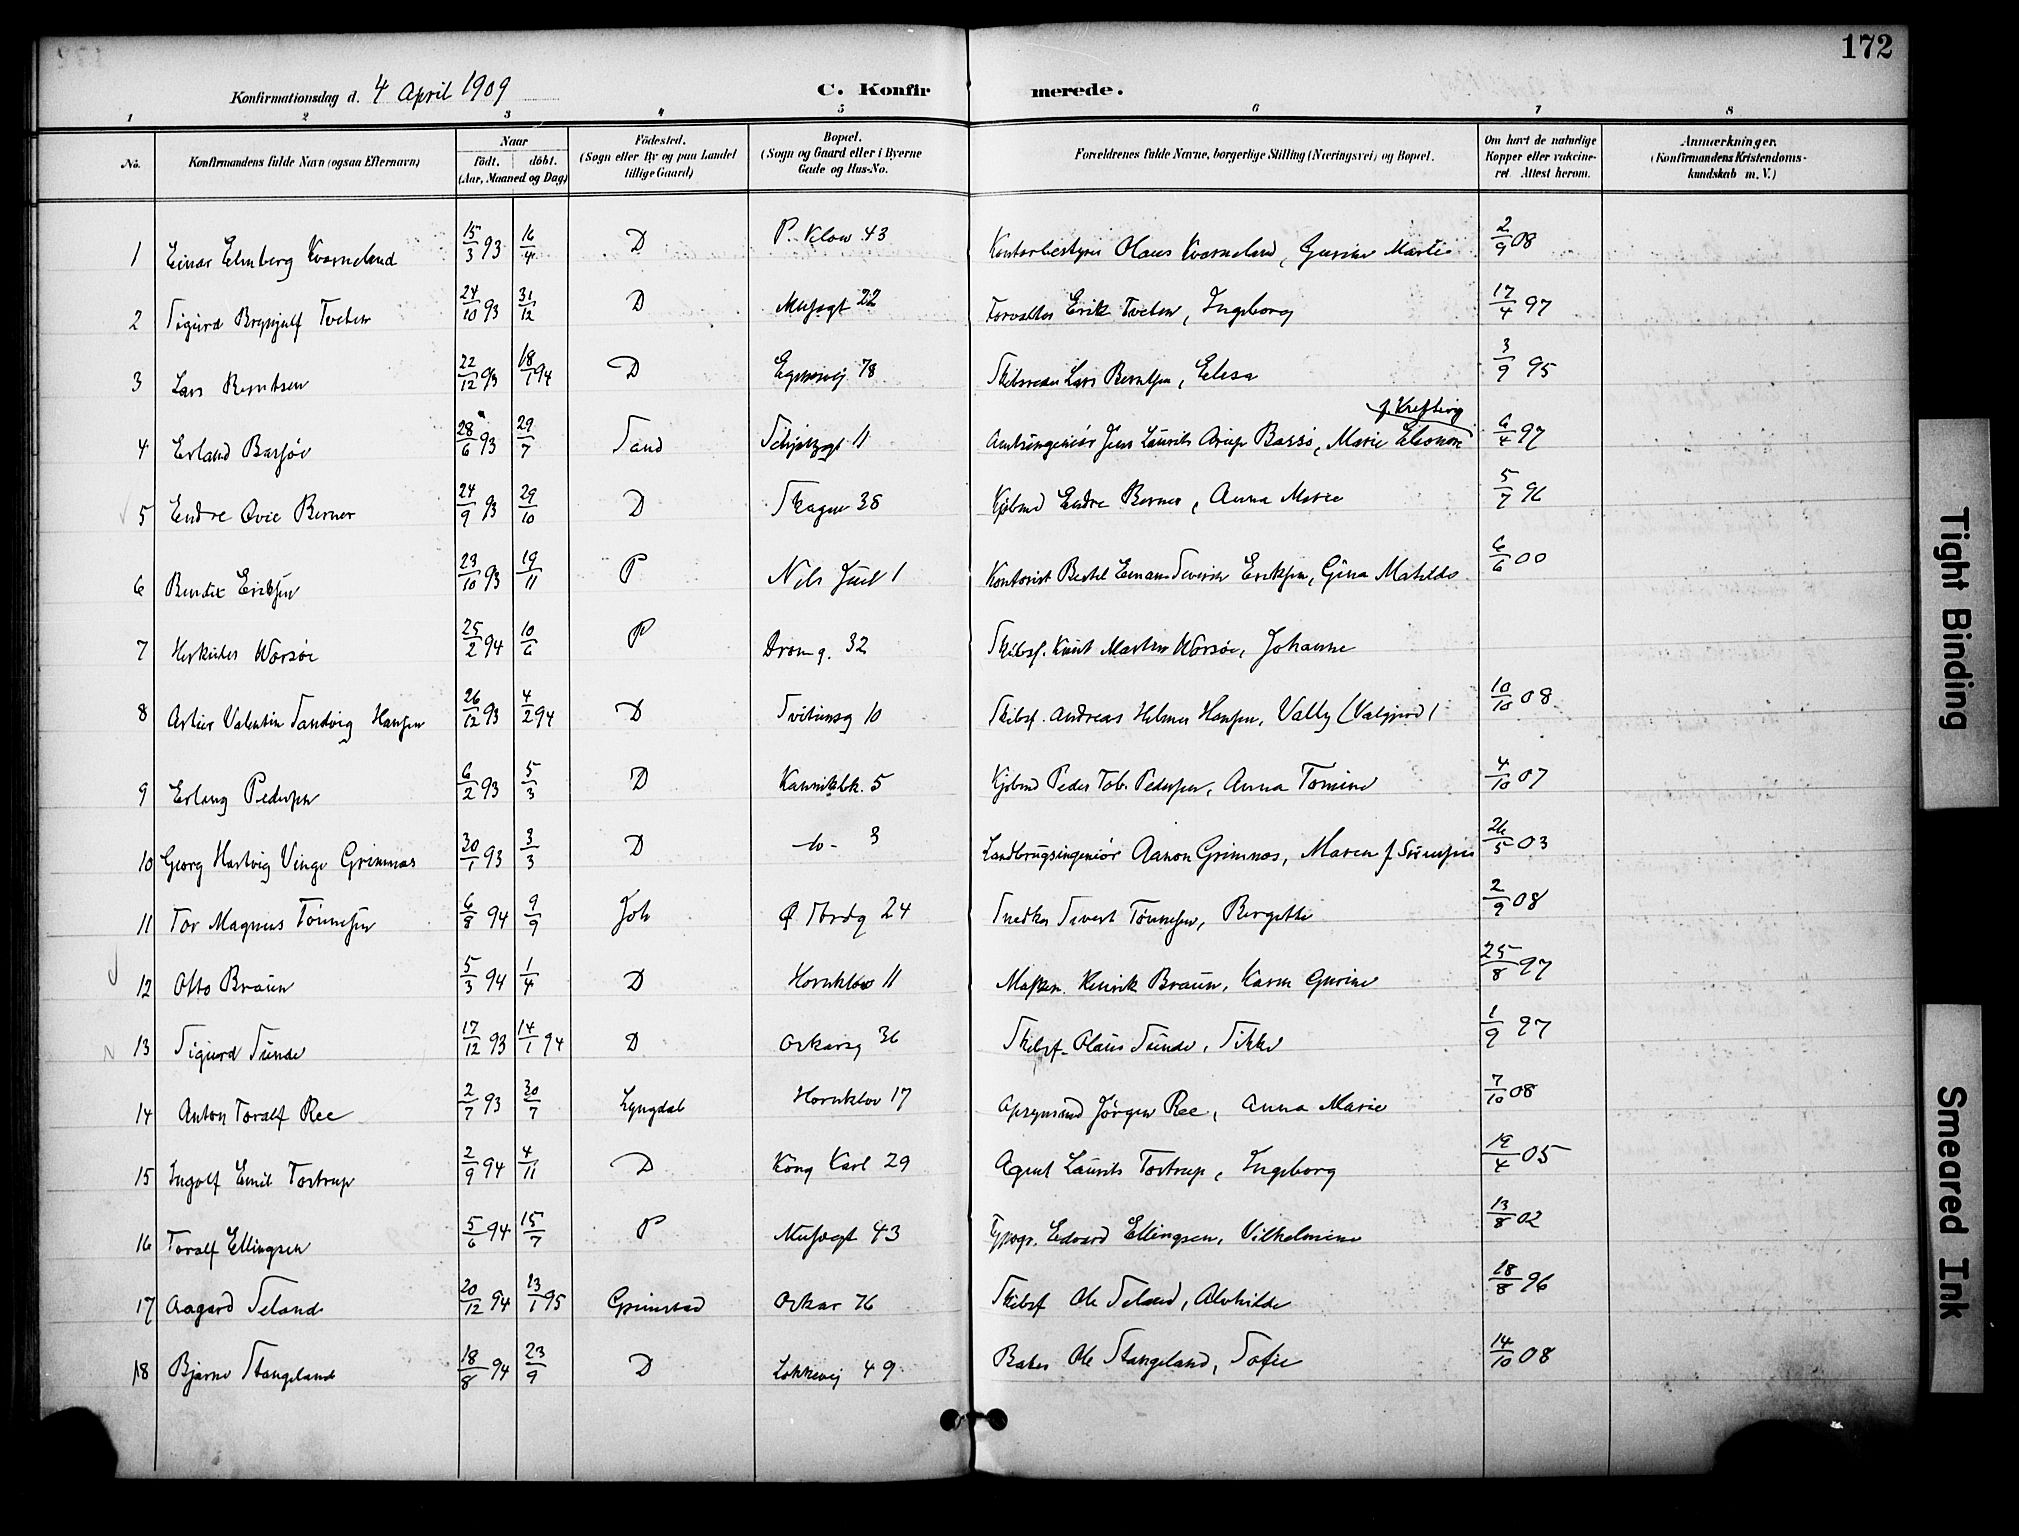 172
Konfirmationsdag d. 4 April 1909
C. Konfirmerede.
1 2 3 4 5 6 7 8
No. Konfirmandens fulde Navn (ogsaa Efternavn) Naar födt. döbt. (Aar, Maaned og Dag) Födested. (Sogn eller By og paa Landet tillige Gaard) Bopæl. (Sogn og Gaard eller i Byerne Gade og Hus-No. Forældrenes fulde Navne, borgerlige Stilling (Næringsvei) og Bopæl. Om havt de naturlige Kopper eller vakcineret. Attest herom. Anmærkninger. (Konfirmandens Kristendomskundskab m. V.)
1 Einar Elmberg Kvarneland 15/3 93 16/4 D P. Klow 43 Kontorbestyrer Olaus Kvarneland, Gurine Martie 2/9 08
2 Sigurd Brynjulf Tveten 24/10 93 31/12 D Musegt 22 Forvalter Erik Tveten, Ingeborg 17/4 97
3 Lars Berntsen 22/12 93 18/1 94 D Egenesvej 78 Skibsreder Lars Berntsen, Elisa 3/9 95
4 Erland Bassøe 28/6 93 29/7 Sand 11 Amtsingeniør Jens Laurits Arup Bassø, Marie Eleonore f. Krefting 6/4 97
5 Endre Ovie Berner 24/9 93 29/10 D Skagen 38 Kjöbmd Endre Berner, Anna Marie 5/7 96
6 Bendix Eriksen 23/10 93 19/11 P Nils Juel 1 Kontorist Bertel Eman Severin Eriksen, Gina Matilde 6/6 00
7 Herkules Worsöe 25/2 94 10/6 P Dronn g. 32 Skibsf. Knut Martin Worsöe, Johanne
8 Artur Valentin Sandvig Hansen 26/12 93 4/2 94 D Svitunsg 10 Skibsf. Andreas Helmer Hansen, Vally (Valgjerd) 10/10 08
9 Erling Pedersen 6/2 93 5/3 D Kannikbk. 5 Kjöbmd Peder Tob. Pedersen, Anna Tomine 4/10 07
10 Georg Hartvig Vinge Grimnæs 30/1 93 3/3 D -do- 3 Landbrugsingeniör Aanon Grimnæs, Maren f Sörensen 26/5 03
11 Tor Magnus Tönnesen 6/8 94 9/9 Joh Ø Tordg 24 Snedker Sivert Tönnesen, Bergitte 2/9 08
12 Otto Braün 5/3 94 1/4 D Hornklow 11 Maskin. Henrik Braün, Karen Gurine 25/8 97
13 Sigurd Sunde 17/12 93 14/1 94 D Oskarsg 36 Skibsf. Olaüs Sünde, Sikke 1/9 97
14 Anton Toralf Ree 2/7 93 30/7 Lyngdal Hornklov 17 Opsynsmd Jörgen Ree, Anna Marie 7/10 08
15 Ingolf Emil Tostrup 2/9 94 4/11 D Kong Karl 29 Agent Laurits Tostrup, Ingeborg 19/4 05
16 Toralf Ellingsen 5/6 94 15/7 P Musegt 43 Typogr. Edvard Ellingsen, Vilhelmine 13/8 02
17 Aagard Seland 20/12 94 13/1 95 Grimstad Oskar 76 Skibsf Ole Seland, Alvhilde 18/8 96
18 Bjarne Stangeland 18/8 94 23/9 D Lökkevej 49 Baker Ole Stangeland, Sofie 14/10 08
Tight Binding
Smeared Ink